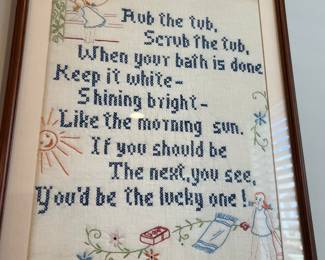 Rub the tub,
Scrub the tub,
When your bath is done
Keep it white-
Shining bright-
Like the morning sun.
If you should be
The next, you see,
You'd be the lucky one!